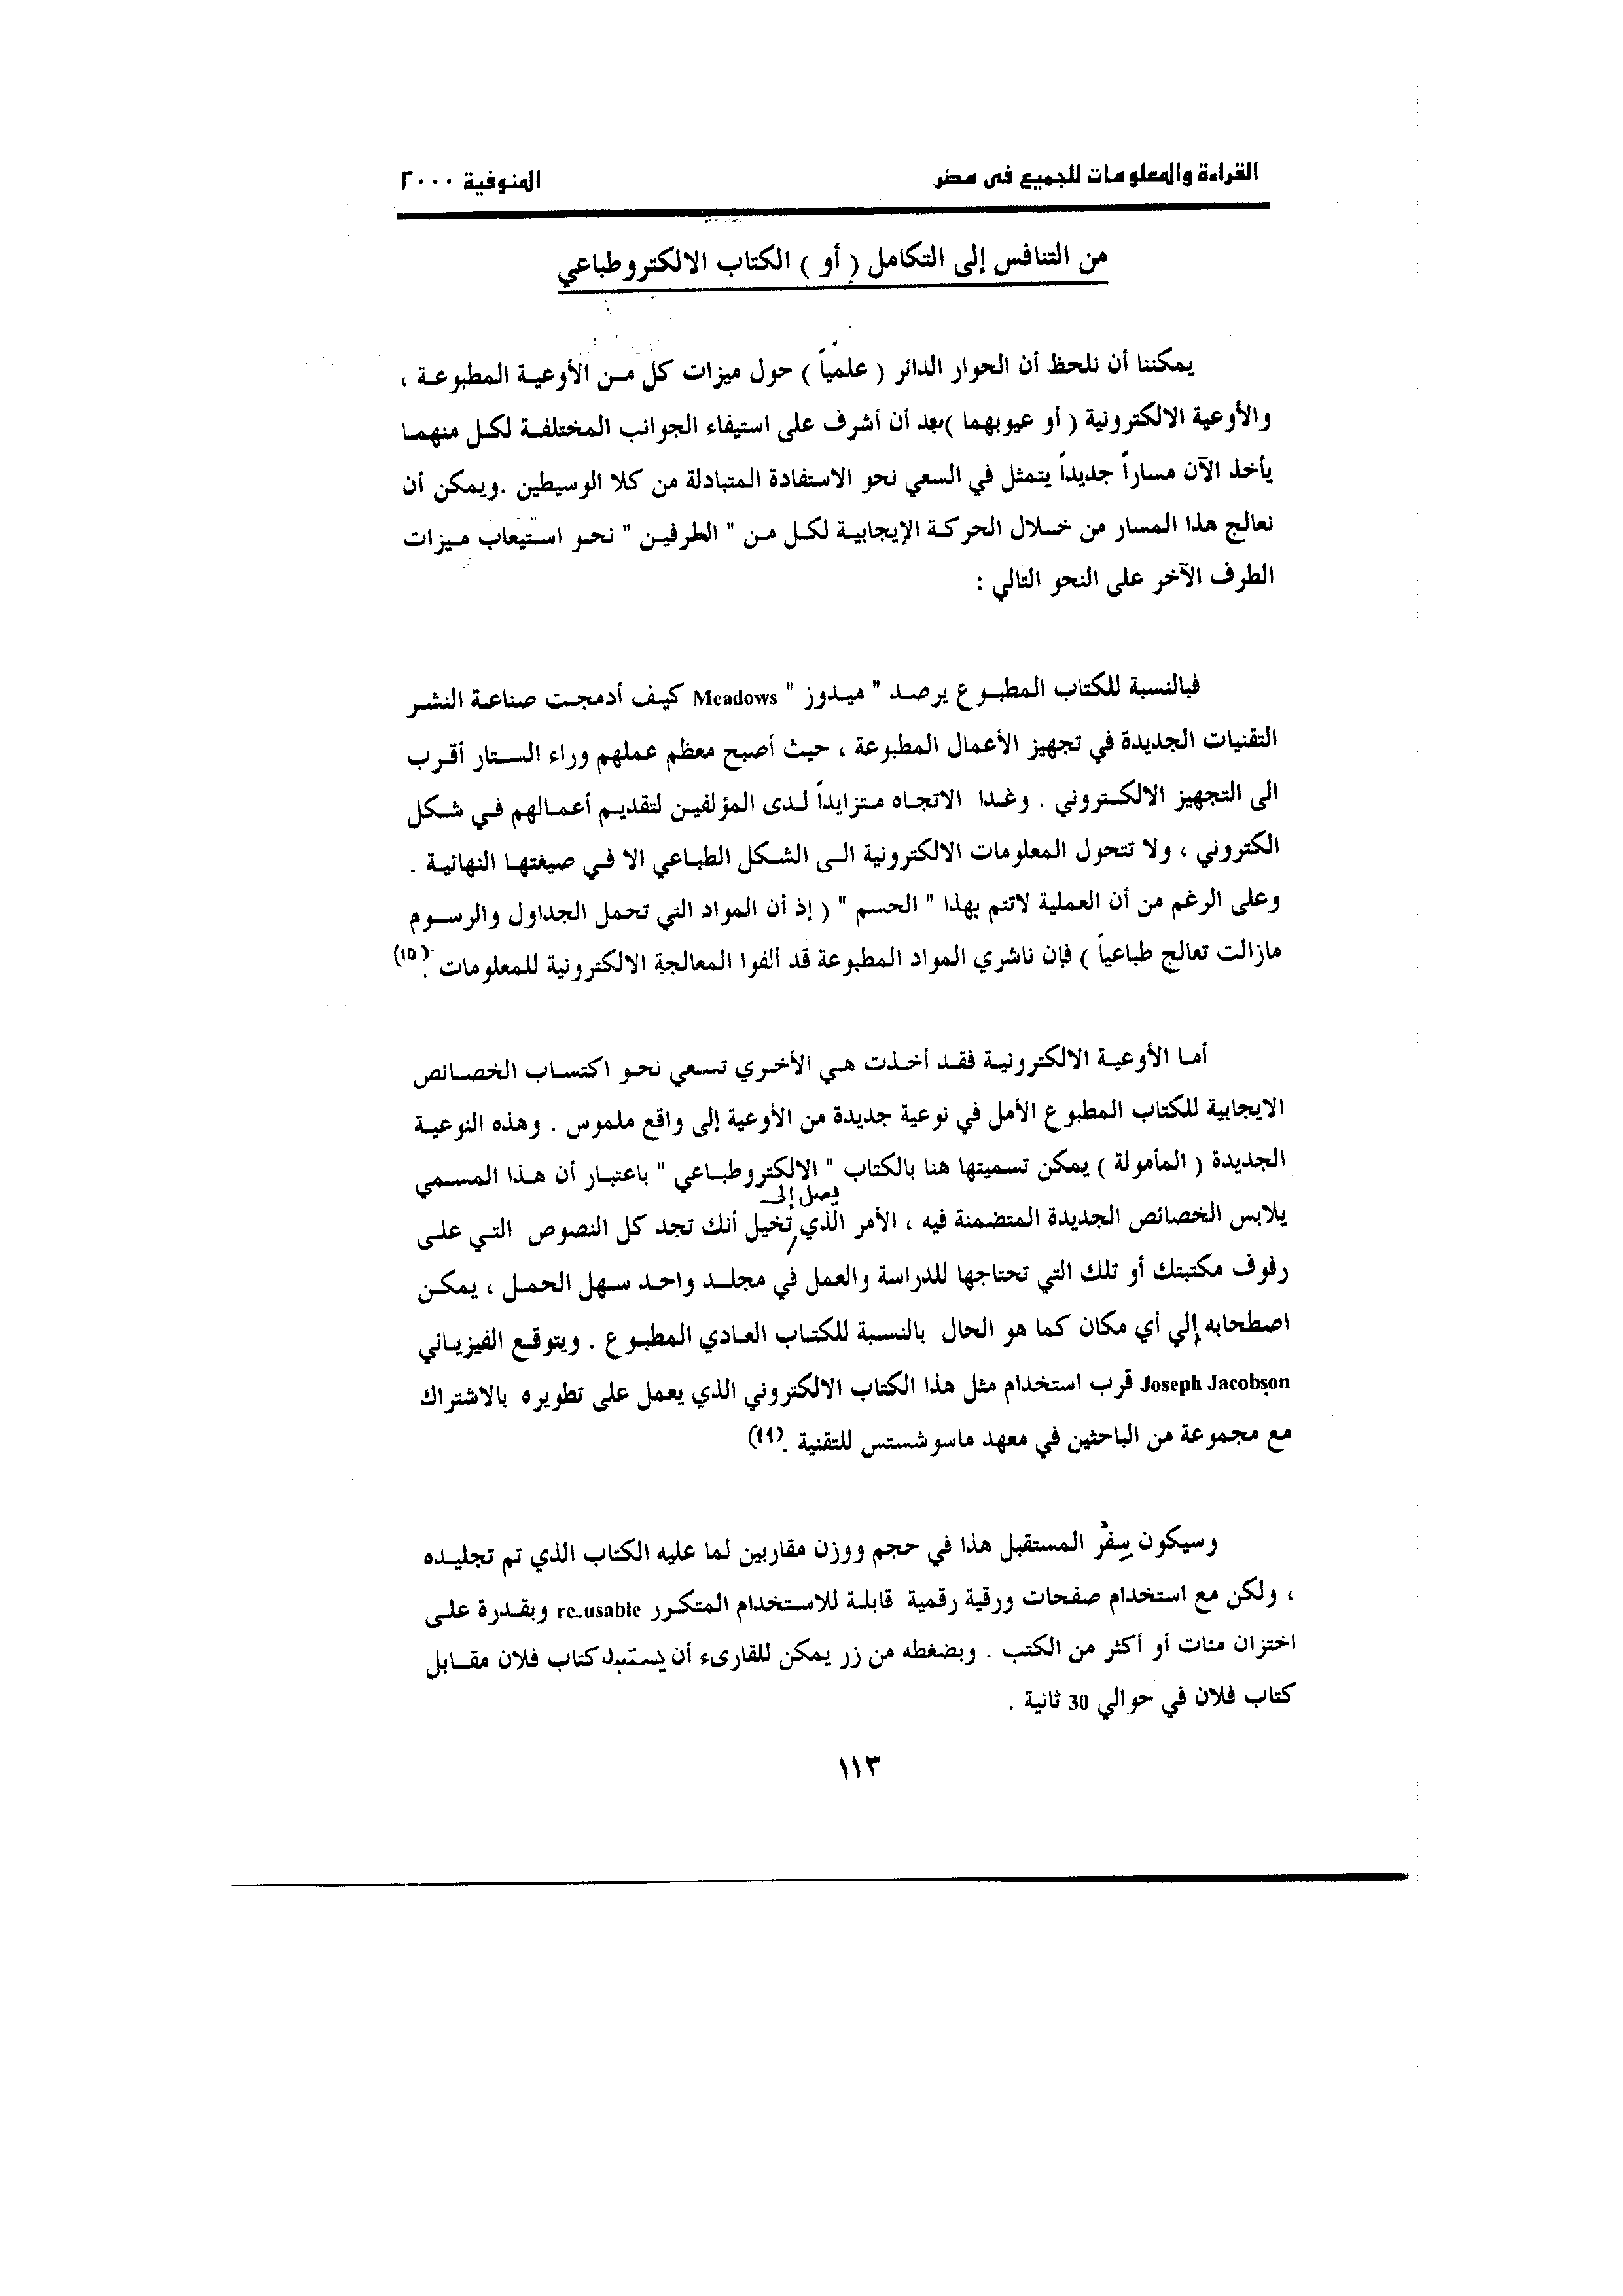 القراءة والمعلومات للجميع فى مصر
المنوفية ٢٠٠٠
من التنافس إلى التكامل ( أو ) الكتاب الالكتروطباعي
يمكننا أن نلحظ أن الحوار الدائر ( علمياً ) حول ميزات كل من الأوعية المطبوعة ،
والأوعية الالكترونية ( أو عيوبهما ) بعد أن أشرف على استيفاء الجوانب المختلفة لكل منهما
يأخذ الآن مساراً جديداً يتمثل في السعي نحو الاستفادة المتبادلة من كلا الوسيطين .ويمكن أن
نعالج هذا المسار من خلال الحركة الإيجابية لكل من " الطرفين " نحو استيعاب ميزات
الطرف الآخر على النحو التالي :
فبالنسبة للكتاب المطبوع يرصد " ميدوز " Meadows كيف أدمجت صناعة النشر
التقنيات الجديدة في تجهيز الأعمال المطبوعة ، حيث أصبح معظم عملهم وراء الستار أقرب
الى التجهيز الالكتروني . وغدا الاتجاه متزايداً لدى المؤلفين لتقديم أعمالهم في شكل
الكتروني ، ولا تتحول المعلومات الالكترونية الى الشكل الطباعي الا في صيغتها النهائية .
وعلى الرغم من أن العملية لاتتم بهذا " الحسم " ( إذ أن المواد التي تحمل الجداول والرسوم
مازالت تعالج طباعياً ) فإن ناشري المواد المطبوعة قد ألفوا المعالجة الالكترونية للمعلومات .(١٥)
أما الأوعية الالكترونية فقد أخذت هي الأخري تسعي نحو اكتساب الخصائص
الايجابية للكتاب المطبوع الأمل في نوعية جديدة من الأوعية إلى واقع ملموس . وهذه النوعية
الجديدة ( المأمولة ) يمكن تسميتها هنا بالكتاب " الالكتروطباعي " باعتبار أن هذا المسمي
يصل إلى
يلابس الخصائص الجديدة المتضمنة فيه ، الأمر الذي تخيل أنك تجد كل النصوص التي على
رفوف مكتبتك أو تلك التي تحتاجها للدراسة والعمل في مجلد واحد سهل الحمل ، يمكن
اصطحابه إلي أي مكان كما هو الحال بالنسبة للكتاب العادي المطبوع . ويتوقع الفيزيائي
Joseph Jacobson قرب استخدام مثل هذا الكتاب الالكتروني الذي يعمل على تطويره بالاشتراك
مع مجموعة من الباحثين في معهد ماسوشستس للتقنية .
وسيكون سِفْر المستقبل هذا في حجم ووزن مقاربين لما عليه الكتاب الذي تم تجليده
، ولكن مع استخدام صفحات ورقية رقمية قابلة للاستخدام المتكرر re-usable وبقدرة على
اختزان مئات أو أكثر من الكتب . وبضغطه من زر يمكن للقارىء أن يستبدل كتاب فلان مقابل
كتاب فلان في حوالي 30 ثانية .
١١٣